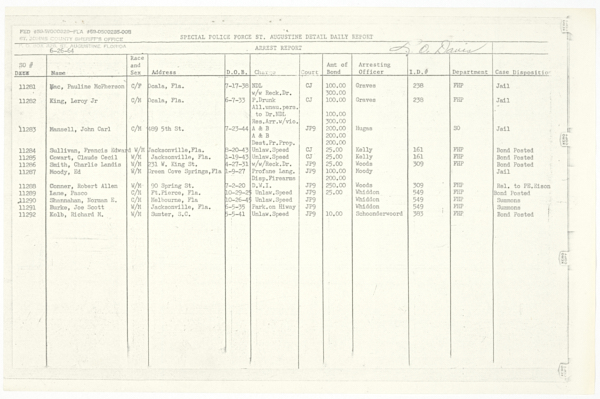 SPECIAL POLICE FORCE ST. AUGUSTINE DETAIL DAILY REPORT
6-26-64 ARREST REPORT
SO # Name Race and Sex Address D.O.B. Charge Court Amt of Bond Arresting Officer I.D.# Department Case Disposition
11281 Mac, Pauline McPherson C/F Ocala, Fla. 7-17-38 NDL CJ 100.00 Graves 238 FHP Jail
w/w Reck.Dr. 500.00
11282 King, Leroy Jr C/M Ocala, Fla. 6-7-33 P.Drunk CJ 100.00 Graves 238 FHP Jail
All.unau.pers.
to Dr.NDL 100.00
Res.Arr.w/vio. 500.00
11283 Mansell, John Carl C/M 489 5th St. 7-23-44 A & B JP9 200.00 Hugas SO Jail
A & B 200.00
Dest.Pr.Prop. 200.00
11284 Sullivan, Francis Edward W/M Jacksonville,Fla. 8-20-43 Unlaw.Speed CJ 25.00 Kelly 161 FHP Bond Posted
11285 Cowart, Claude Cecil W/M Jacksonville, Fla. 1-19-43 Unlaw.Speed CJ 25.00 Kelly 161 FHP Bond Posted
11286 Smith, Charlie Landis W/M 231 W. King St. 4-27-31 w/w/Reck.Dr. JP9 25.00 Woods 309 FHP Bond Posted
11287 Moody, Ed W/M Green Cove Springs,Fla 1-9-27 Profane Lang. JP9 100.00 Moody Jail
Disp.Firearm 200.00
11288 Conner, Robert Allen W/M 98 Spring St. 7-2-20 D.W.I. JP9 250.00 Woods 309 FHP
11289 Lane, Pasco C/M Ft.Pierce, Fla. 10-29-25 Unlaw.Speed JP9 25.00 Whiddon 549 FHP Bond Posted
11290 Shannahan, Norman S. C/M Melbourne, Fla 10-26-45 Unlaw.Speed JP9 Whiddon 549 FHP Summons
11291 Burke, Joe Scott W/M Jacksonville, Fla 6-5-35 Park.on Hiway JP9 Whiddon 549 FHP Summons
11292 Kolb, Richard M. W/M Sumter, S.C. 5-5-41 Unlaw.Speed JP9 10.00 Schoonderwoerd 383 FHP Bond Posted